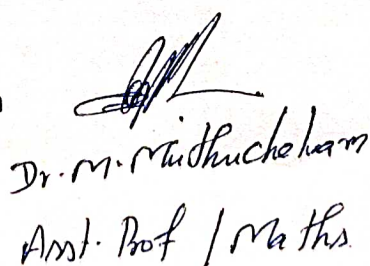 Dr. M. Muthuchelvam
Asst. Prof / Maths.